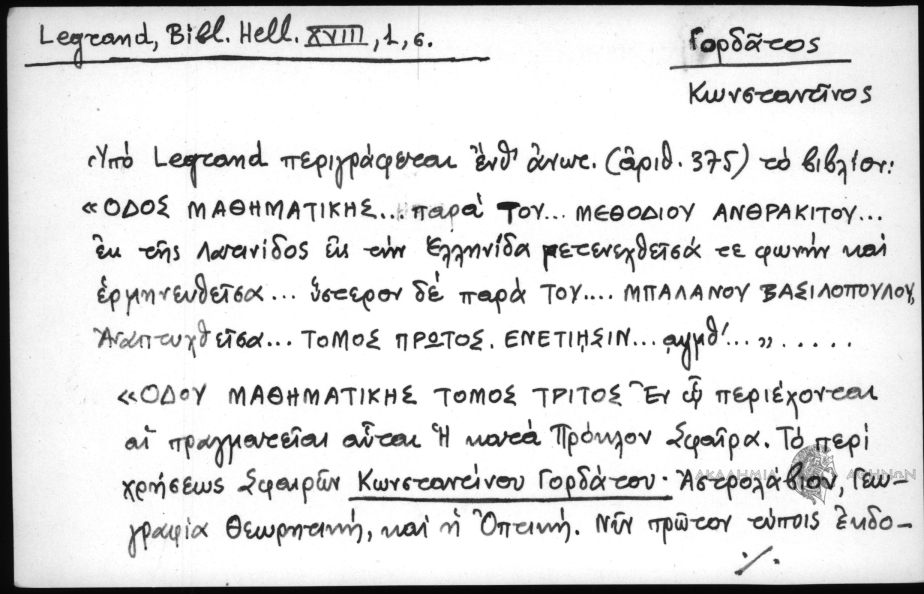 Legrand, Bibl. Hell. XVIII, 1, 6.
Γορδᾶτος
Κωνσταντῖνος
Ὑπό Legrand περιγράφεται ἔνθ' ἀνωτ. (ἀριθ. 375) τό βιβλίον:
«ΟΔΟΣ ΜΑΘΗΜΑΤΙΚΗΣ... παρά ΤΟΥ... ΜΕΘΟΔΙΟΥ ΑΝΘΡΑΚΙΤΟΥ...
ἐκ τῆς Λατινίδος εἰς τήν Ἑλληνίδα μετενεχθεῖσά τε φωνήν καί
ἑρμηνευθεῖσα... ὕστερον δέ παρά ΤΟΥ.... ΜΠΑΛΑΝΟΥ ΒΑΣΙΛΟΠΟΥΛΟΥ,
Ἀναπτυχθεῖσα... ΤΟΜΟΣ ΠΡΩΤΟΣ. ΕΝΕΤΙΗΣΙΝ... ͵αψμθ'...» .....
«ΟΔΟΥ ΜΑΘΗΜΑΤΙΚΗΣ ΤΟΜΟΣ ΤΡΙΤΟΣ Ἐν ᾧ περιέχονται
αἱ πραγματεῖαι αὗται Ἡ κατά Πρόκλον Σφαῖρα. Τό περί
χρήσεως Σφαιρῶν Κωνσταντίνου Γορδάτου· Ἀστρολάβιον, Γεω-
γραφία Θεωρητική, καί ἡ Ὀπτική. Νῦν πρῶτον τύποις ἐκδο-
./.
ΑΚΑΔΗΜΙΑ ΑΘΗΝΩΝ